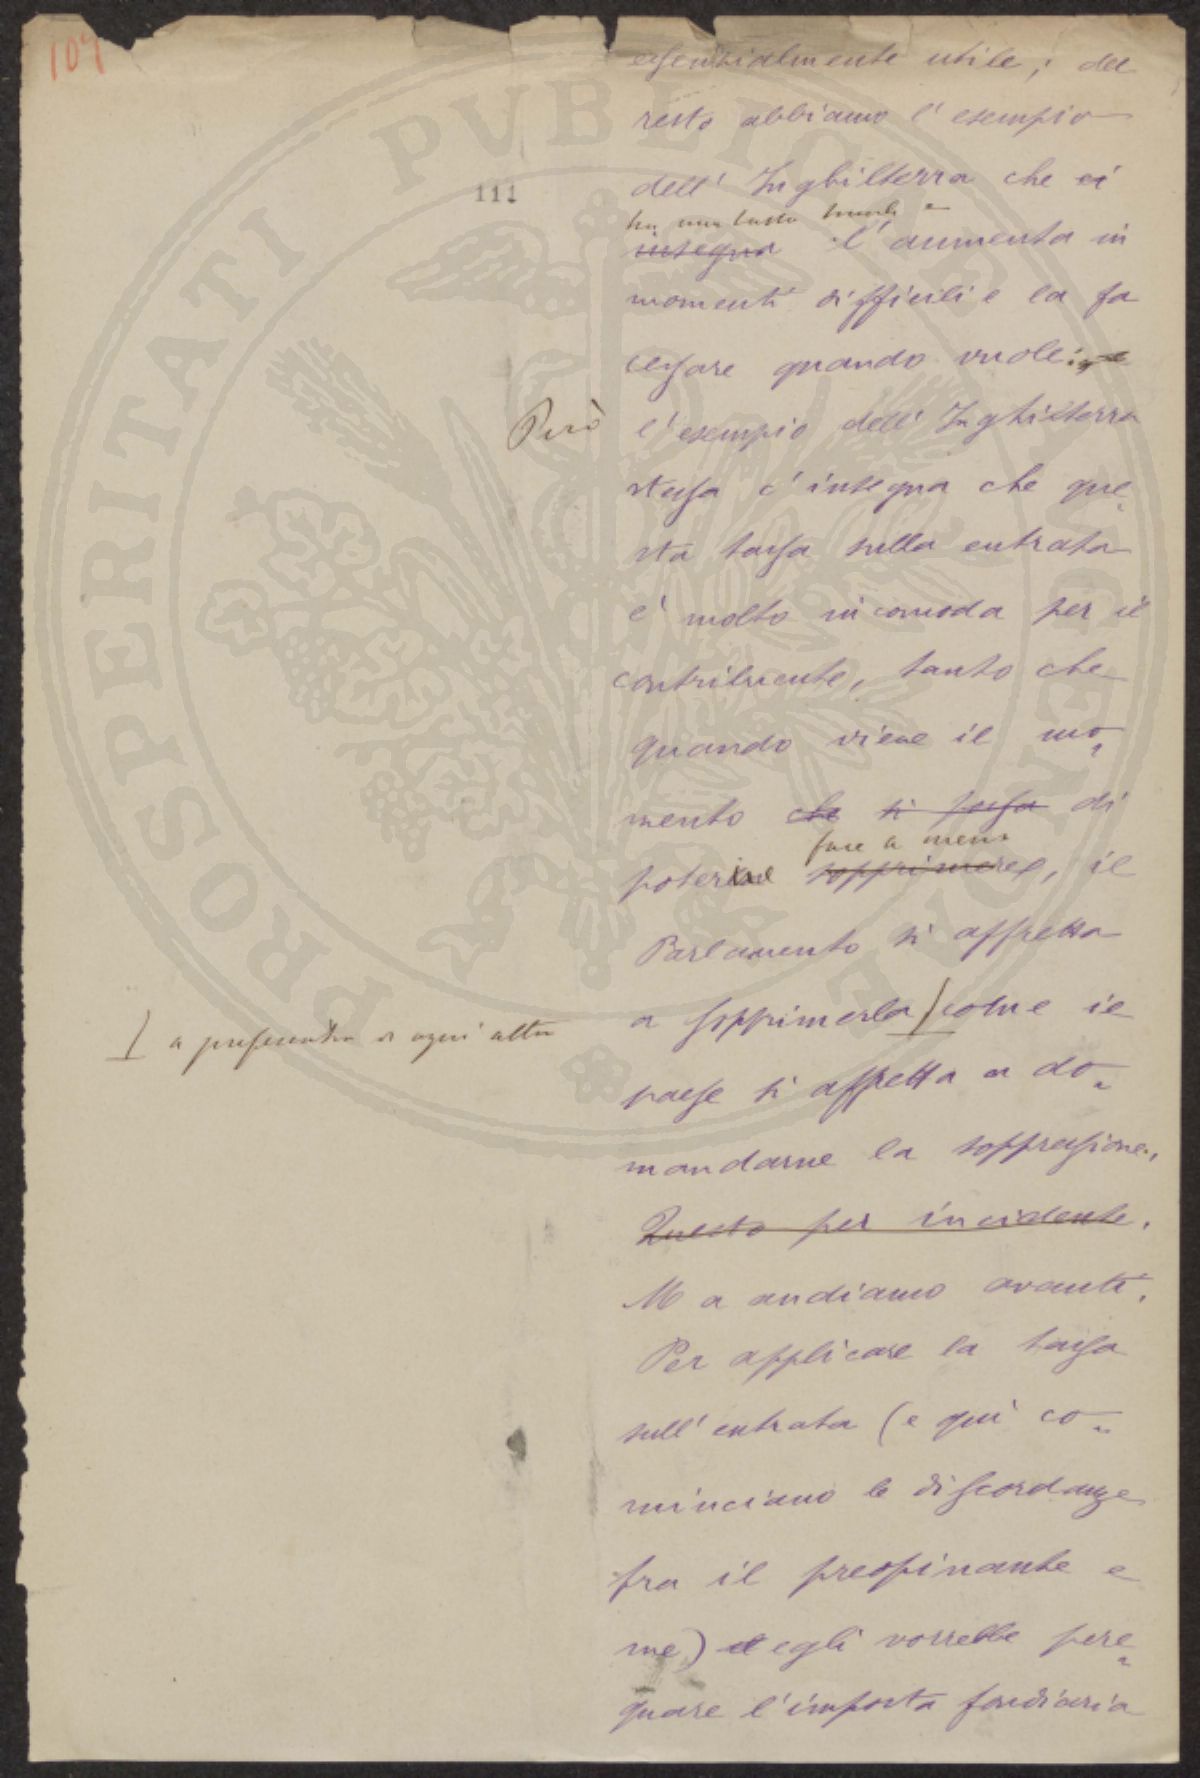 107
essenzialmente utile; del
resto abbiamo l'esempio
111
dell'Inghilterra che ci
ha una tassa
insegna l'aumenta in
momenti difficili e la fa
cessare quando vuole:
Però l'esempio dell'Inghilterra
stessa c'insegna che que-
sta tassa sulla entrata
è molto incomoda per il
contribuente, tanto che
quando viene il mo-
mento che si possa di
fare a meno
poterne sopprimere, il
Parlamento si affretta
a sopprimerla / come il
/ a preferenza di ogni altra
paese si affretta a do-
mandarne la soppressione.
Questo per incidente.
Ma andiamo avanti.
Per applicare la tassa
sull'entrata (e qui co-
minciano le discordanze
fra il preopinante e
me) egli vorrebbe pere-
quare l'imposta fondiaria
PROSPERITATI PVBLICAE AVGENDAE